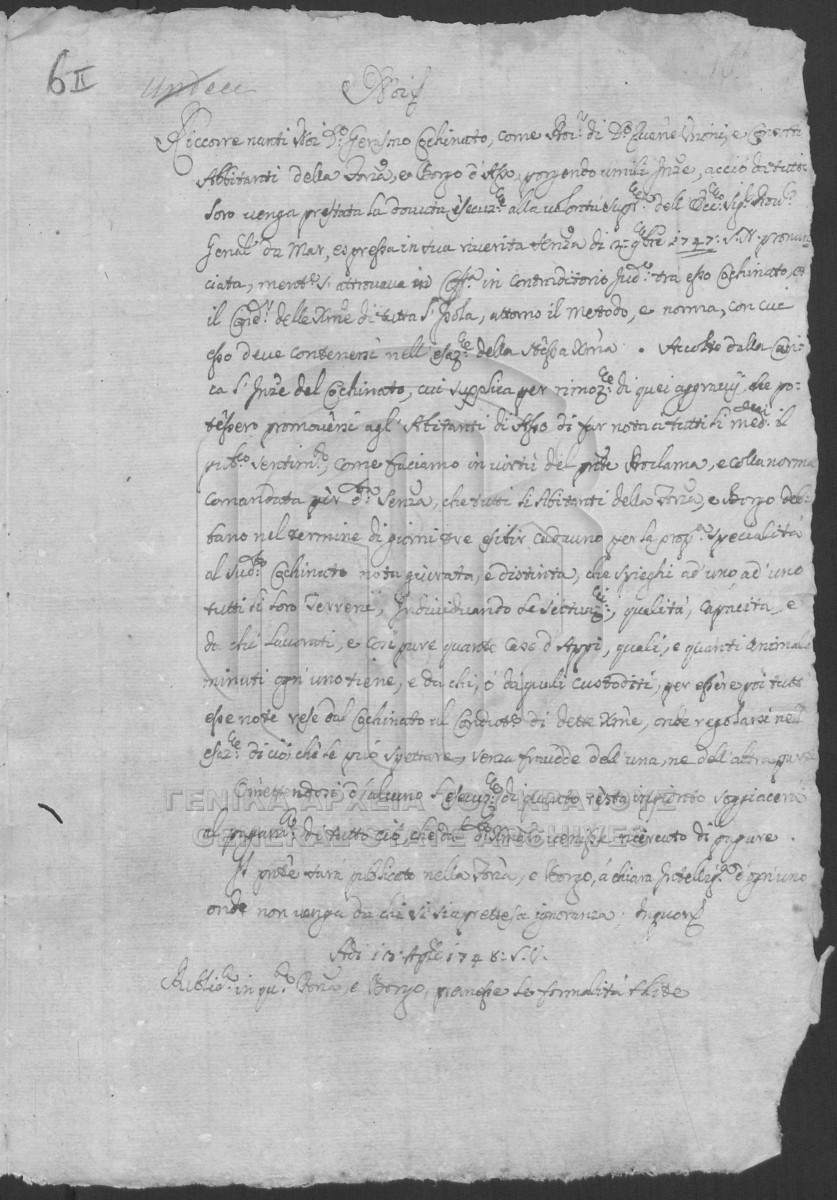 6 II
Noi
Riccorre nanti Noi D:º Gerasmo Cochinato, come di e
Abbitanti della Forza, e Borgo d'Asso, porgendo umili Inze, acciò da tutti
loro venga prestata la dovuta esecuz:ne alla volontà Sup:re dell' Ecc:mo Sig:r Prov:r
Genal da Mar, espressa in sua riverita Senza di 2: 9bre 1747: S.N. pronun
ciata, mentre s'attrovava in in contraditorio Jud:º tra esso Cochinato, et
il Cond:r delle Xme di tutta l'Isola, attorno il mettodo, e norma, con cui
esso deve contenersi nell'esaz:ne della stessa Xma. Accolto dalla Cari-
ca l'Inze del Cochinato, cui supplica per rimoz:ne di quei aggravij che po-
tessero promoversi agl'Abitanti di Asso di far nota a tutti li med:mi il
pub:co sentim:to, come facciamo in virtù del pnte Proclama, e colla norma
comandata per d:ta Senza, che tutti li Abitanti della Forza, e Borgo deb-
bano nel termine di giorni tre esibir cadauno per la prop:a specialità
al sud:to Cochinato nota giurata, e distinta, che spieghi ad uno, ad uno
tutti li loro Terreni, Individuando le situaz:ni, qualità, capacità, e
da chi lavorati, e così pure quante Case d'Appi, quali, e quanti Animali
minuti ogn'uno tiene, e da chi, ò da quali custoditi, per essere poi tutte
esse note rese dal Cochinato al Condutt:r di dette Xme, onde regolarsi nell'
esaz:ne di ciò, che le può spettare, senza fraudde dell'una, ne dell'altra parte
Omettendosi d'alcuno l'esecuz:ne di quanto resta ingionto soggiacerà
al pagam:to di tutto ciò, che dal venisse ricercato di pagare.
Il pnte sarà publicato nella Forza, e Borgo, à chiara Intellig:za d'ogn'uno
onde non venga da chi si sia pretesa ignoranza. In quor
Adi 13: Aple 1748: S.V.
Public:to in qu:ta Forza, e Borgo, premesse le formalità solite
ΓΕΝΙΚΑ ΑΡΧΕΙΑ ΤΟΥ ΚΡΑΤΟΥΣ
GENERAL STATE ARCHIVES